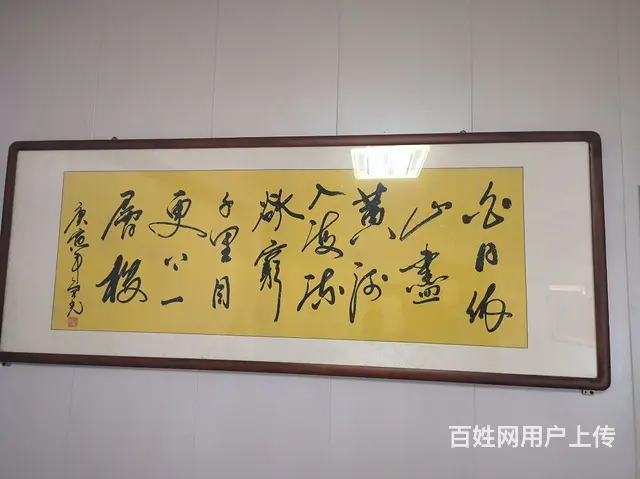 白日依
山盡
黄河
入海流
欲窮
千里目
更上一
層樓
庚寅年
百姓网用户上传